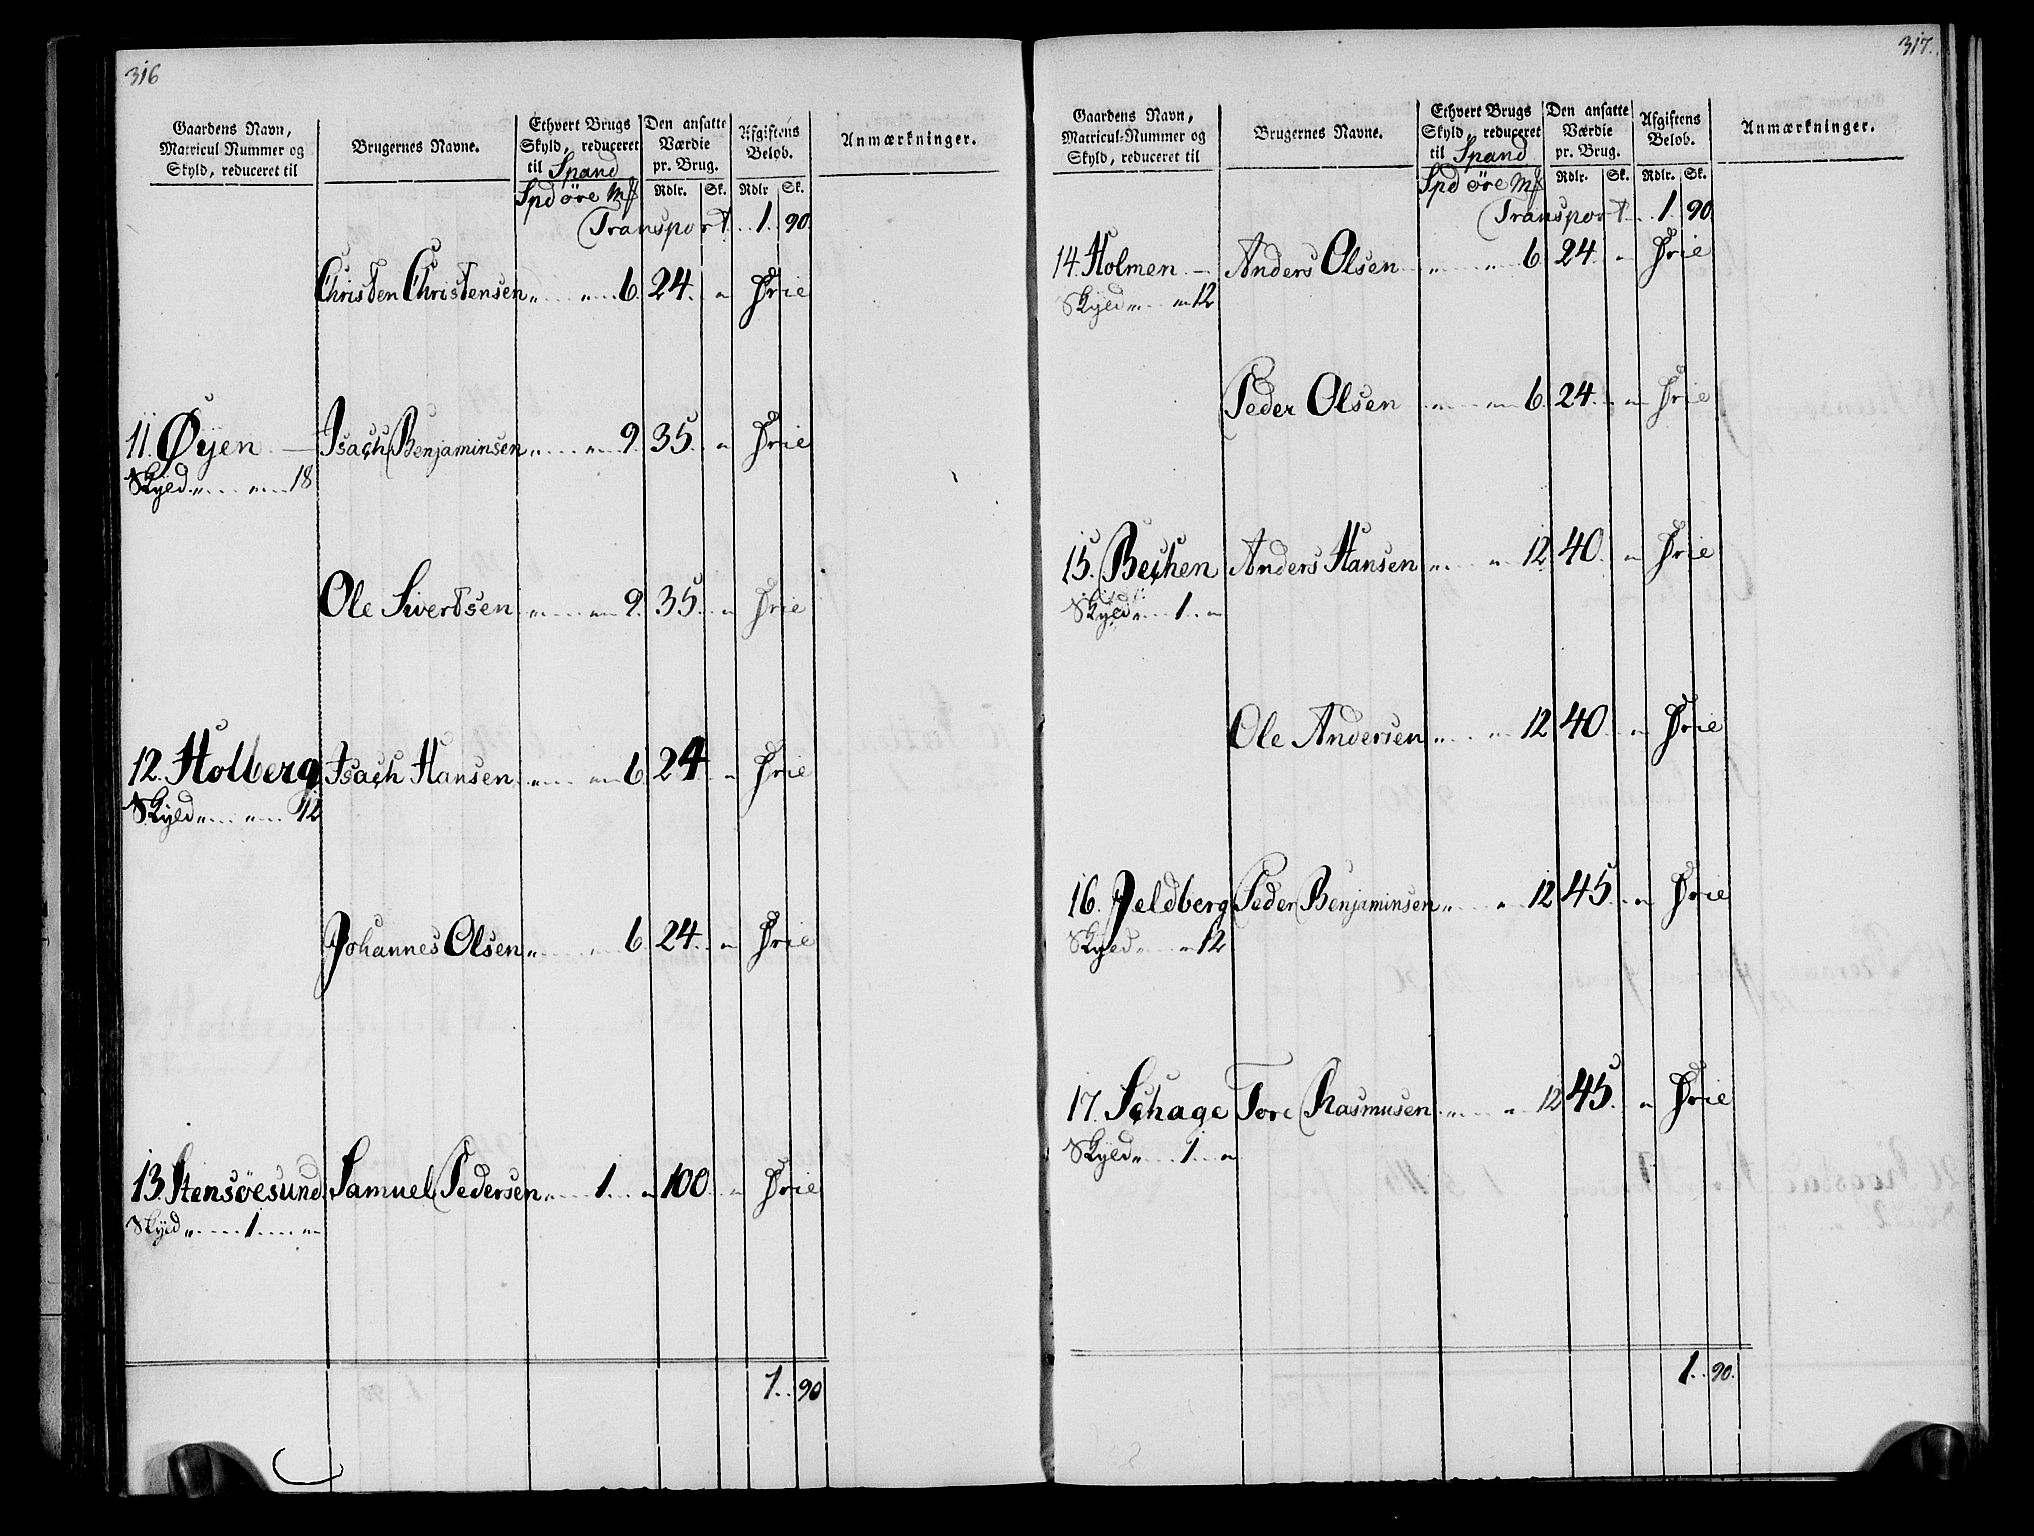 316
Gaardens Navn, Matricul Nummer og Skyld, reduceret til | Brugernes Navne. | Ethvert Brugs Skyld, reduceret til Spand | Den ansatte Værdie pr. Brug. | Afgiftens Beløb. | Anmærkninger.
Spd öre Mk | Rdlr. | Sk. | Rdlr | Sk.
Transport .. 1. 90.
Christen Christensen „ „ 6. 24. „ Frie
11. Øyen — Isach Benjaminsen „ „ 9. 35. „ Frie
Skyld „ „ 18
Ole Sivertsen „ „ 9. 35. „ Frie
12. Holberg Isach Hansen „ „ 6. 24. „ Frie
Skyld „ „ 12
Johannes Olsen „ „ 6. 24. „ Frie
13. Stensøesund Samuel Pedersen „ 1. „ 100 „ Frie
Skyld „ 1 „
1. 90
317.
Gaardens Navn, Matricul-Nummer og Skyld, reduceret til | Brugernes Navne. | Ethvert Brugs Skyld, reduceret til Spand | Den ansatte Værdie pr. Brug. | Afgiftens Beløb. | Anmærkninger.
Spd öre Mk | Rdlr. | Sk. | Rdlr. | Sk.
Transport .. 1. 90.
14. Holmen — Anders Olsen „ „ 6 24 „ Frie
Skyld „ „ 12
Peder Olsen „ „ 6. 24. „ Frie
15. Bechen Anders Hansen „ „ 12 40. „ Frie
Skyld „ 1 „
Ole Andersen „ „ 12 40 „ Frie
16. Jeldberg Peder Benjaminsen „ „ 12 45. „ Frie
Skyld „ „ 12
17. Schage Tore Rasmusen „ „ 12 45. „ Frie
Skyld „ 1 „
1. 90.